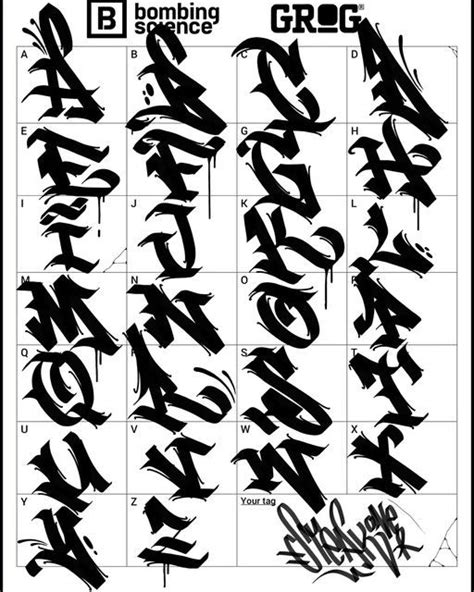 B bombing science® GROG®
A B C D
E F G H
I J K L
M N O P
Q R S T
U V W X
Y Z Your tag